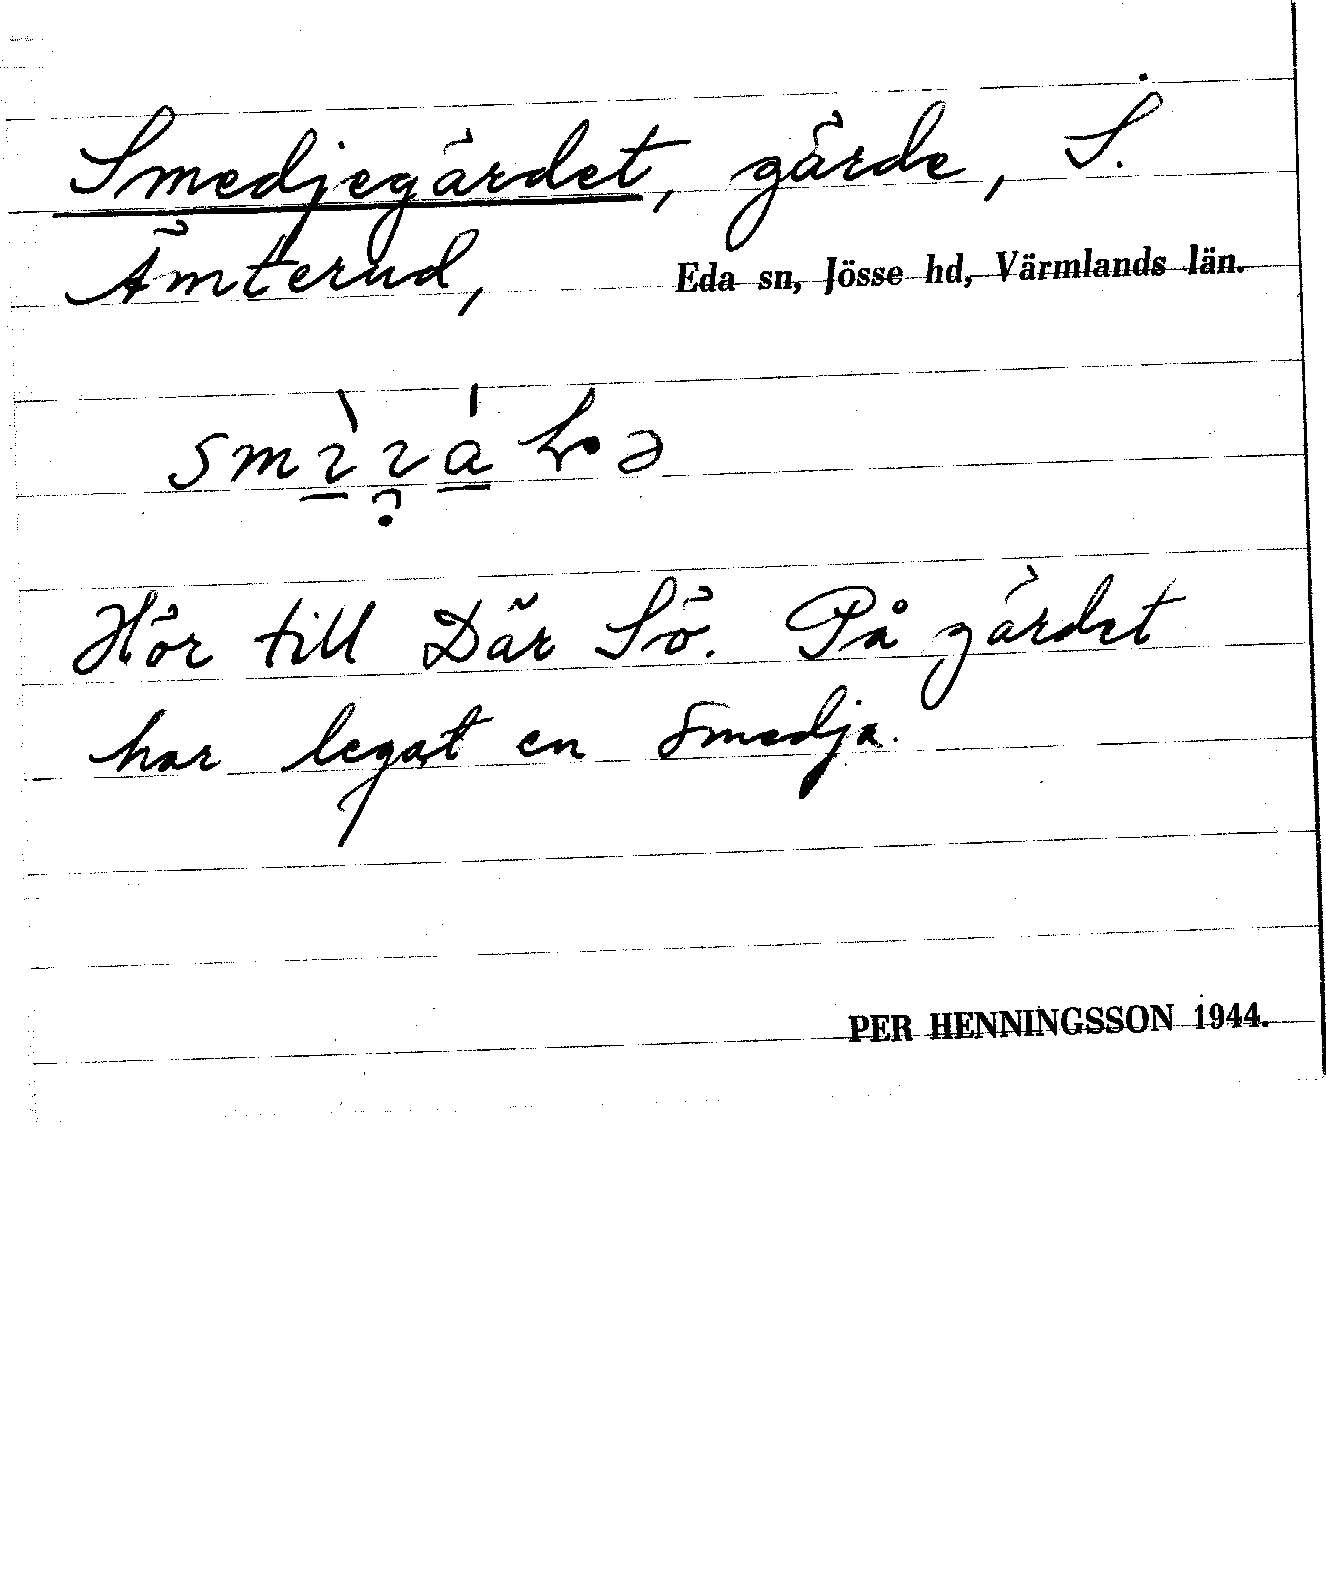 Smedjegärdet, gärde, S.
Ämterud, Eda sn, Jösse hd, Värmlands län.
Hör till Där Sö. På gärdet
har legat en smedja.
PER HENNINGSSON 1944.